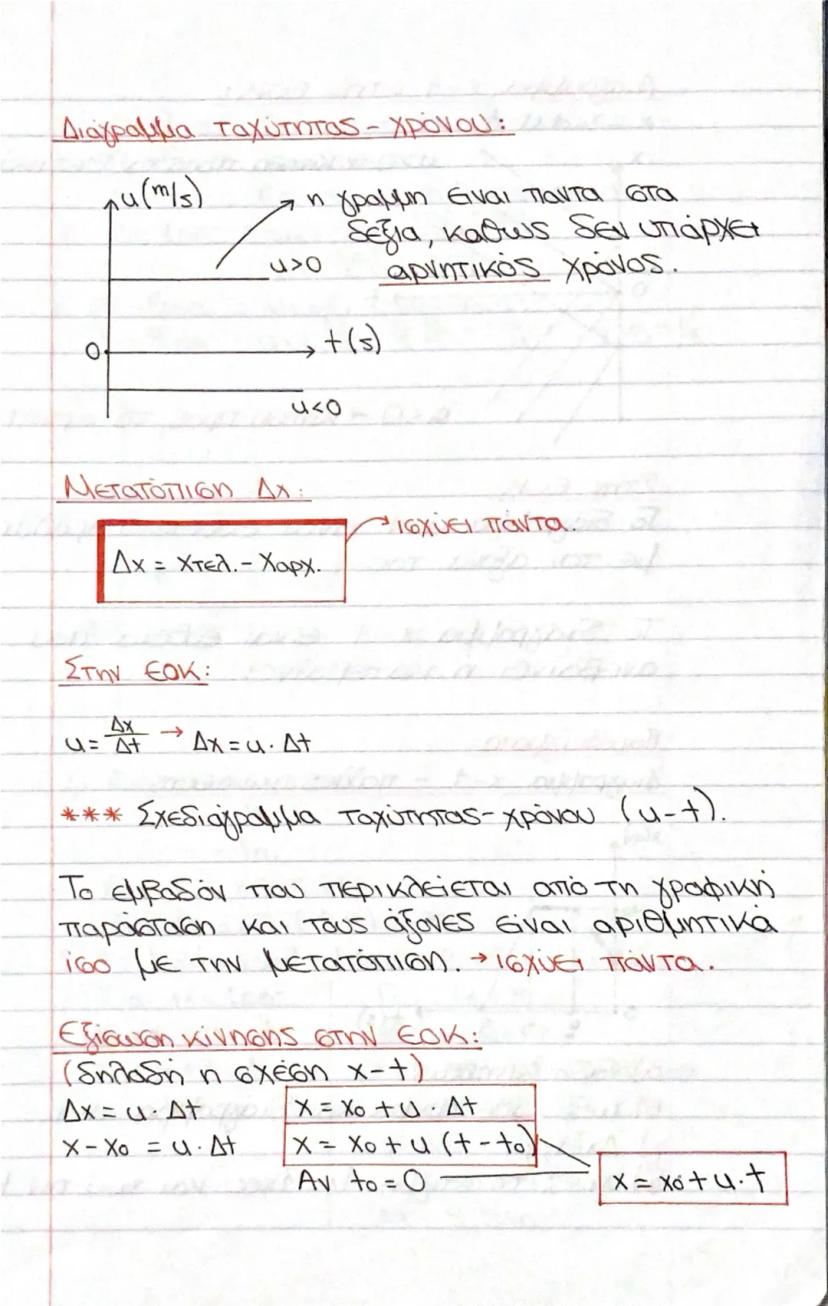 Διάγραμμα ταχύτητας - χρόνου:
u(m/s)
η γραμμη ειναι παντα στα
δεξια, καθως δεν υπάρχει
αρνητικός χρόνος.
u>0
0
t(s)
u<0
Μετατόπιση Δx:
ισχύει πάντα.
Δx = xτελ. - xαρχ.
Στην ΕΟΚ:
u = Δx/Δt → Δx = u · Δt
*** Σχεδιάγραμμα ταχύτητας - χρόνου (u-t).
Το εμβαδόν που περικλείεται από τη γραφική
παράσταση και τους άξονες είναι αριθμητικά
ίσο με την μετατόπιση. → ισχύει πάντα.
Εξίσωση κίνησης στην ΕΟΚ:
(δηλαδή η σχέση x-t)
Δx = u · Δt
x = x₀ + u · Δt
x - x₀ = u · Δt
x = x₀ + u (t - t₀)
Αν t₀ = 0
x = x₀ + u · t